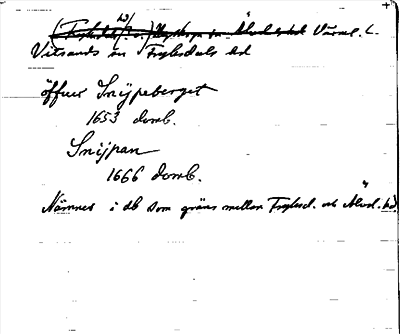 Värml. l.
Vitsands sn Fryksdals hd
öffuer Snÿpeberget
1653 domb.
Snijpan
1666 domb.
Nämnes i db som gräns mellan Fryksd. och Älvd. hd.